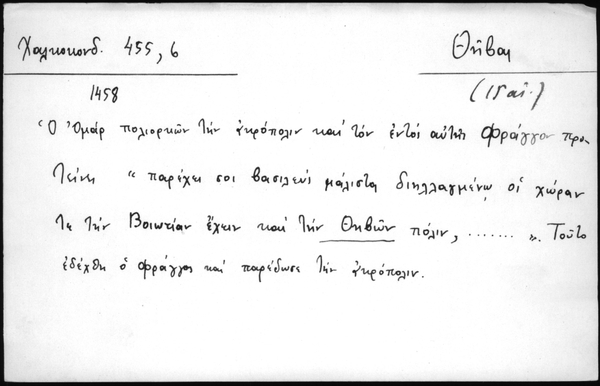 Χαλκοκονδ. 455, 6
Θῆβαι
1458
(15 αἰ.)
Ὁ Ὀμὰρ πολιορκῶν τὴν ἀκρόπολιν καὶ τὸν ἐντὸς αὐτῆς Φράγγον προ-
τείνει " παρέχει σοι βασιλεὺς μάλιστα διηλλαγμένῳ οἱ χώραν
τε τὴν Βοιωτίαν ἔχειν καὶ τὴν Θηβῶν πόλιν, ....... ". Τοῦτο
ἐδέχθη ὁ Φράγγος καὶ παρέδωσε τὴν ἀκρόπολιν.